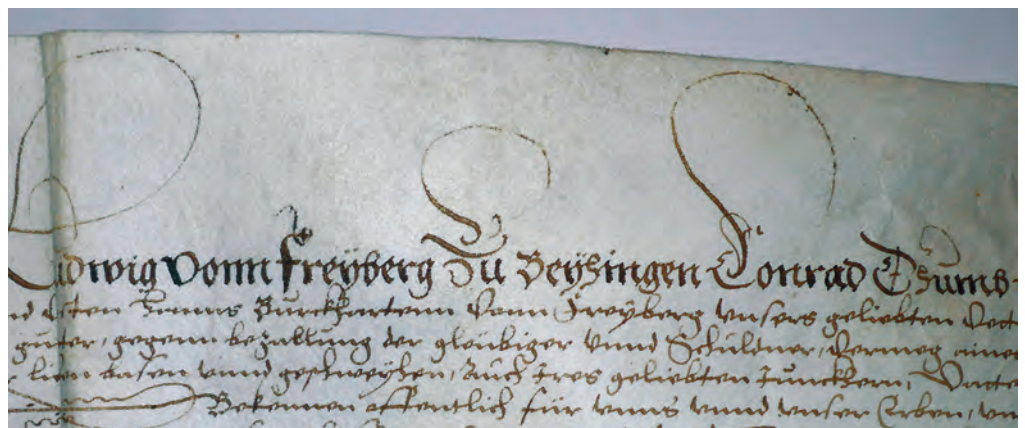 Ludwig vonn Freyberg Zu Beyhingen Conrad Thumb
Hanns Burckhartenn Vonn Freyberg vnsers geliebten Vett
güter, gegenn bezallung der gleubiger vnnd Schuldner, Vermeg aines
lien basen vnnd geschweyhen, Auch Jres geliebten Junckhern, Vatte
Bekennen offentlich für vnns vnnd vnser Erben, vn